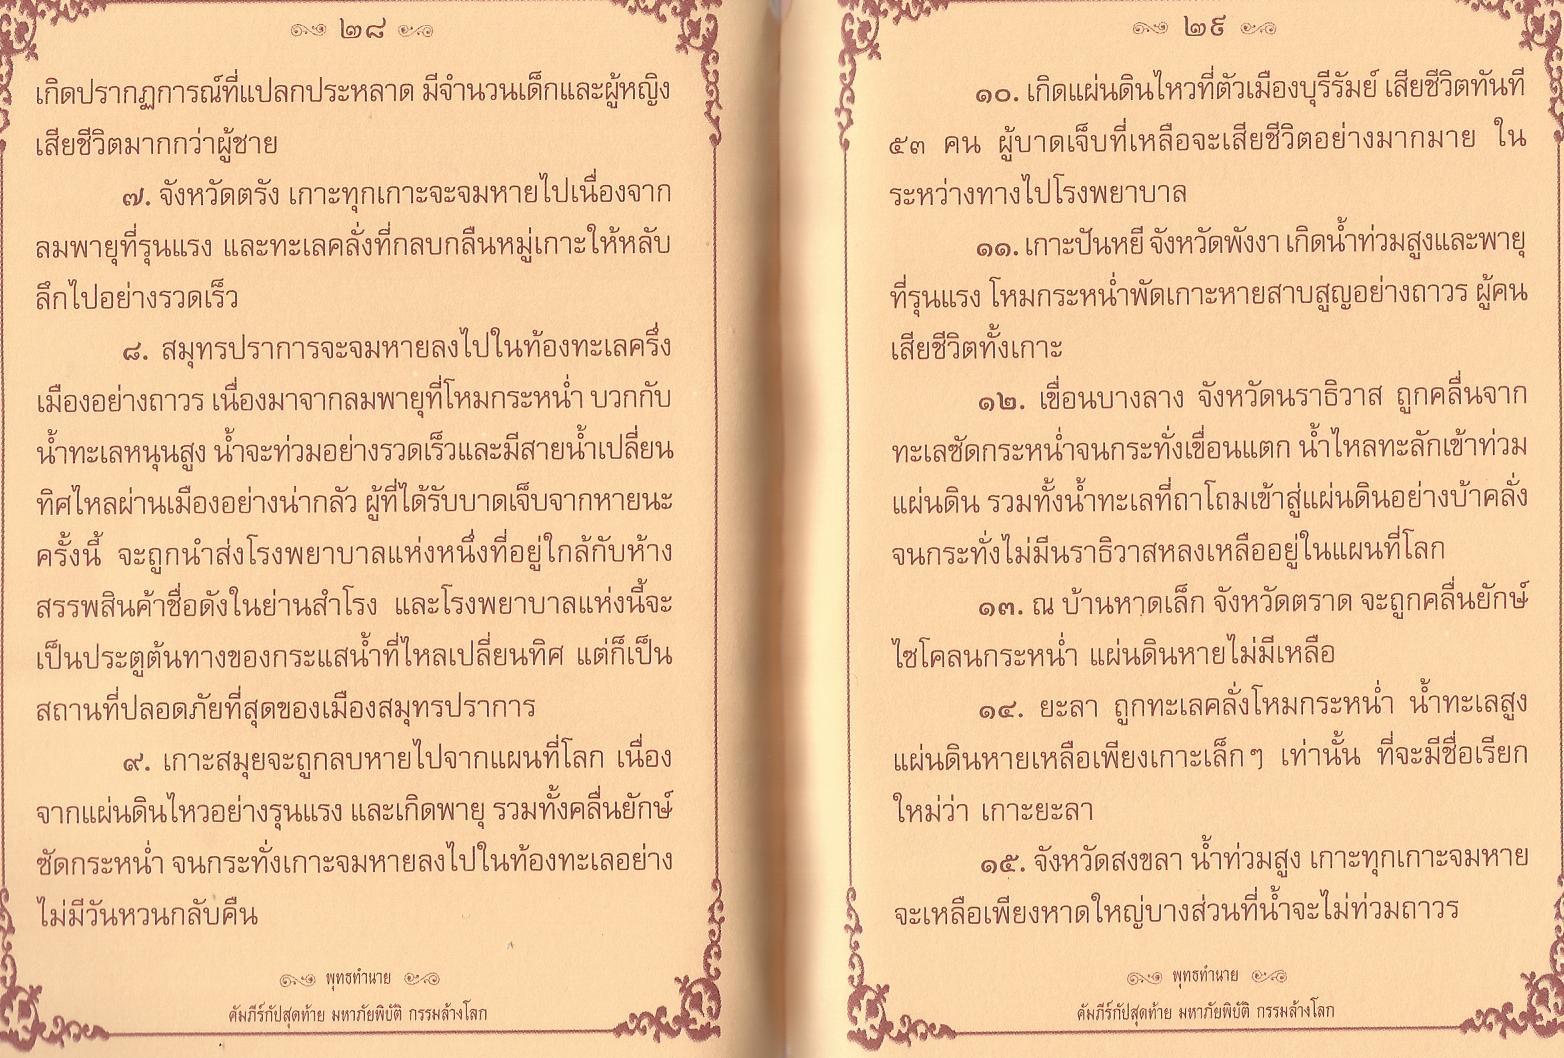 ๒๘
เกิดปรากฏการณ์ที่แปลกประหลาด มีจำนวนเด็กและผู้หญิง
เสียชีวิตมากกว่าผู้ชาย
๗. จังหวัดตรัง เกาะทุกเกาะจะจมหายไปเนื่องจาก
ลมพายุที่รุนแรง และทะเลคลั่งที่กลบกลืนหมู่เกาะให้หลับ
ลึกไปอย่างรวดเร็ว
๘. สมุทรปราการจะจมหายลงไปในท้องทะเลครึ่ง
เมืองอย่างถาวร เนื่องมาจากลมพายุที่โหมกระหน่ำ บวกกับ
น้ำทะเลหนุนสูง น้ำจะท่วมอย่างรวดเร็วและมีสายน้ำเปลี่ยน
ทิศไหลผ่านเมืองอย่างน่ากลัว ผู้ที่ได้รับบาดเจ็บจากหายนะ
ครั้งนี้ จะถูกนำส่งโรงพยาบาลแห่งหนึ่งที่อยู่ใกล้กับห้าง
สรรพสินค้าชื่อดังในย่านสำโรง และโรงพยาบาลแห่งนี้จะ
เป็นประตูต้นทางของกระแสน้ำที่ไหลเปลี่ยนทิศ แต่ก็เป็น
สถานที่ปลอดภัยที่สุดของเมืองสมุทรปราการ
๙. เกาะสมุยจะถูกลบหายไปจากแผนที่โลก เนื่อง
จากแผ่นดินไหวอย่างรุนแรง และเกิดพายุ รวมทั้งคลื่นยักษ์
ซัดกระหน่ำ จนกระทั่งเกาะจมหายลงไปในท้องทะเลอย่าง
ไม่มีวันหวนกลับคืน
พุทธทำนาย
คัมภีร์กัปสุดท้าย มหาภัยพิบัติ กรรมล้างโลก
๒๙
๑๐. เกิดแผ่นดินไหวที่ตัวเมืองบุรีรัมย์ เสียชีวิตทันที
๕๓ คน ผู้บาดเจ็บที่เหลือจะเสียชีวิตอย่างมากมาย ใน
ระหว่างทางไปโรงพยาบาล
๑๑. เกาะปันหยี จังหวัดพังงา เกิดน้ำท่วมสูงและพายุ
ที่รุนแรง โหมกระหน่ำพัดเกาะหายสาบสูญอย่างถาวร ผู้คน
เสียชีวิตทั้งเกาะ
๑๒. เขื่อนบางลาง จังหวัดนราธิวาส ถูกคลื่นจาก
ทะเลซัดกระหน่ำจนกระทั่งเขื่อนแตก น้ำไหลทะลักเข้าท่วม
แผ่นดิน รวมทั้งน้ำทะเลที่ถาโถมเข้าสู่แผ่นดินอย่างบ้าคลั่ง
จนกระทั่งไม่มีนราธิวาสหลงเหลืออยู่ในแผนที่โลก
๑๓. ณ บ้านหาดเล็ก จังหวัดตราด จะถูกคลื่นยักษ์
ไซโคลนกระหน่ำ แผ่นดินหายไม่มีเหลือ
๑๔. ยะลา ถูกทะเลคลั่งโหมกระหน่ำ น้ำทะเลสูง
แผ่นดินหายเหลือเพียงเกาะเล็กๆ เท่านั้น ที่จะมีชื่อเรียก
ใหม่ว่า เกาะยะลา
๑๕. จังหวัดสงขลา น้ำท่วมสูง เกาะทุกเกาะจมหาย
จะเหลือเพียงหาดใหญ่บางส่วนที่น้ำจะไม่ท่วมถาวร
พุทธทำนาย
คัมภีร์กัปสุดท้าย มหาภัยพิบัติ กรรมล้างโลก